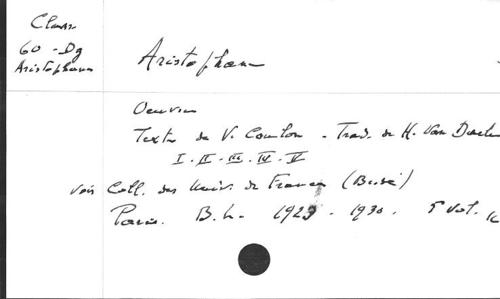 Class
60 - Dg
Aristophane
Aristophane
Oeuvres
Texte de V. Coulon - Trad. de H. Van Daele
I. II - III. IV. V
voir Coll. des Univ. de France (Budé)
Paris. B. L. 1923 - 1930. 5 vol.